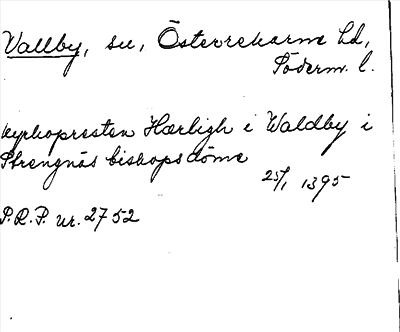 Vallby, sn, Österrekarne hd,
Söderm. l.
kyrkopresten Hærligh i Waldby i
Strengnäs biskopsdöme
25/1 1395
P.R.P. nr. 2752